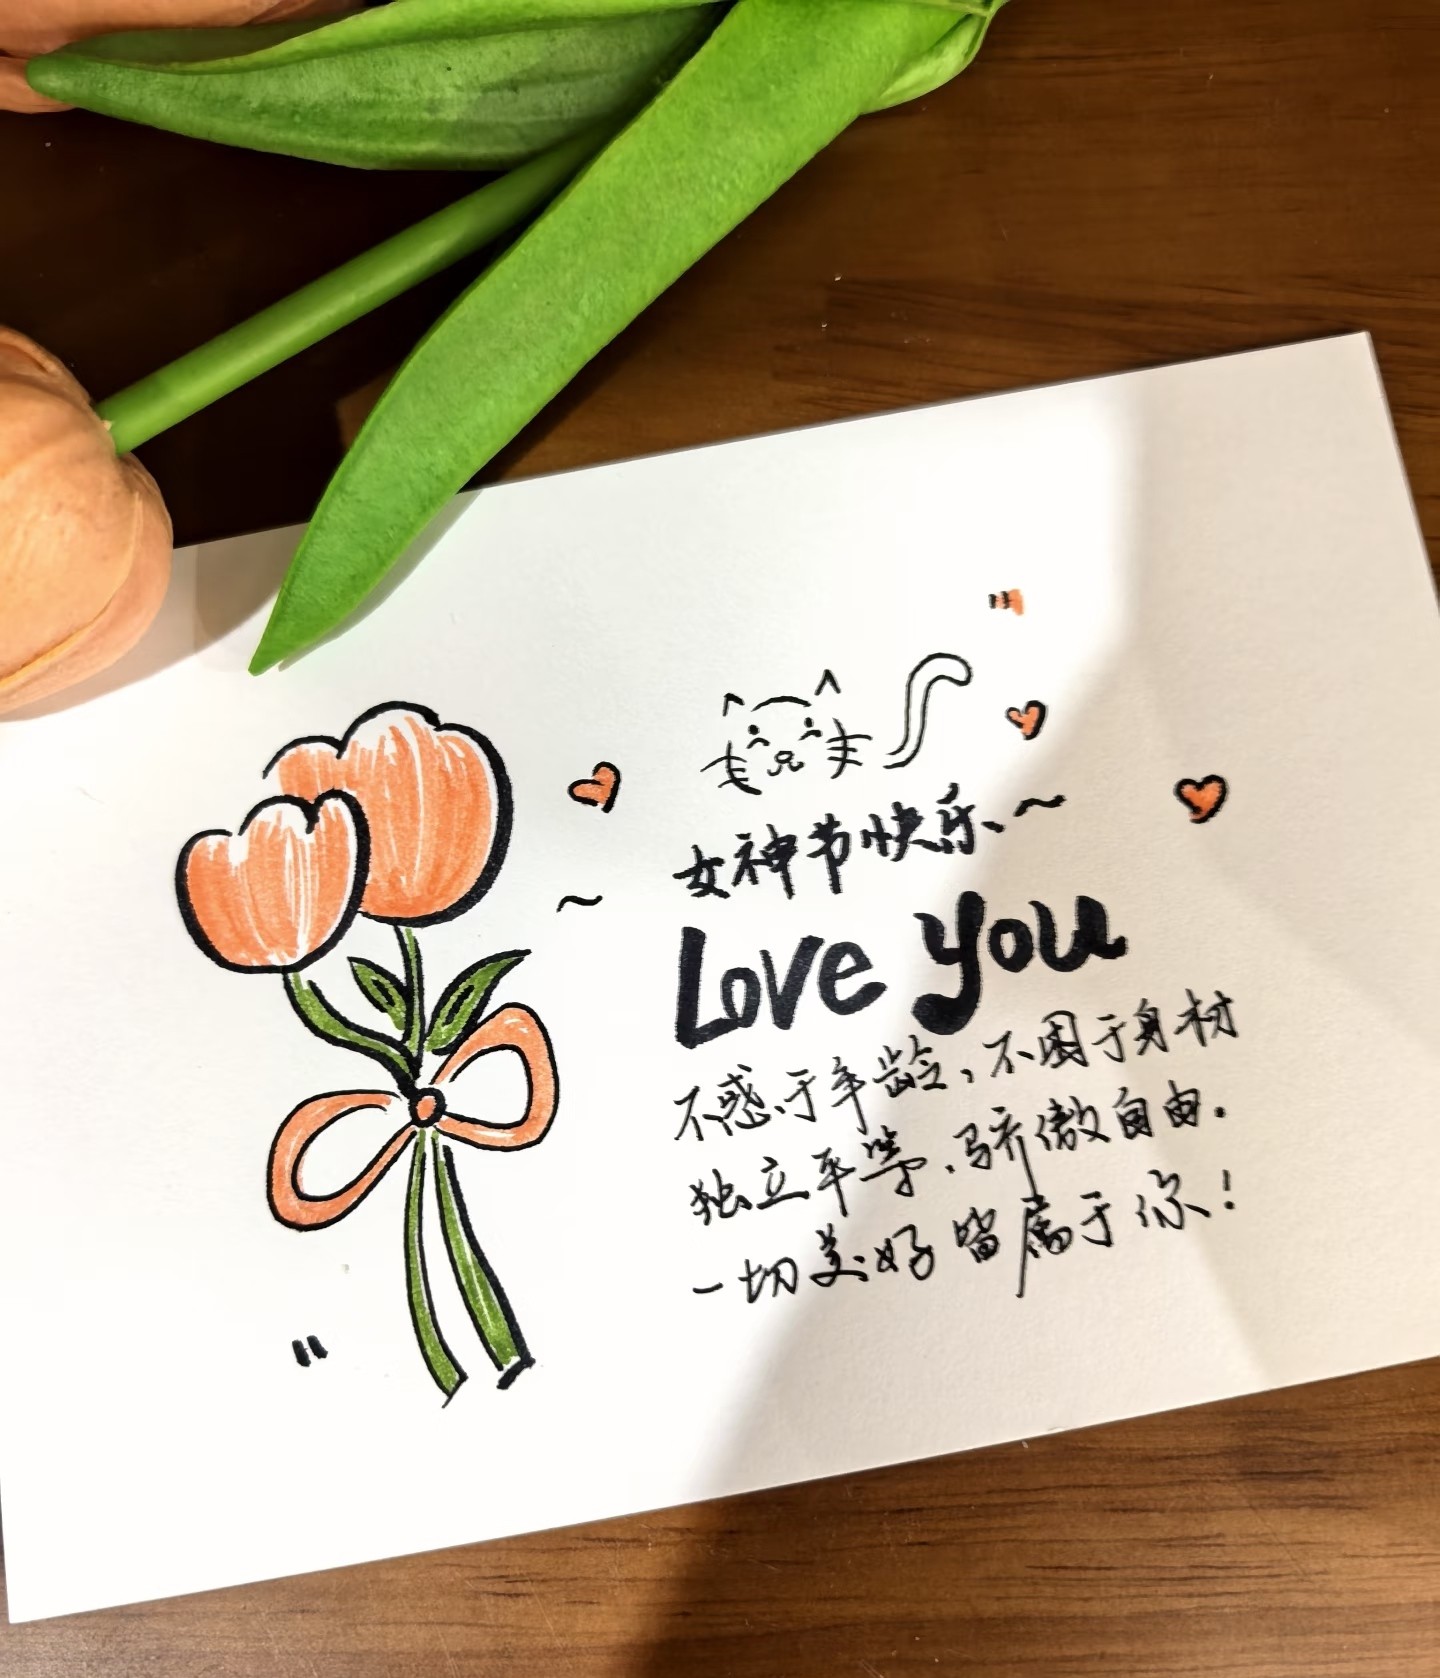 女神节快乐~
Love you
不惑于年龄,不困于身材
独立平等.骄傲自由.
一切美好皆属于你!